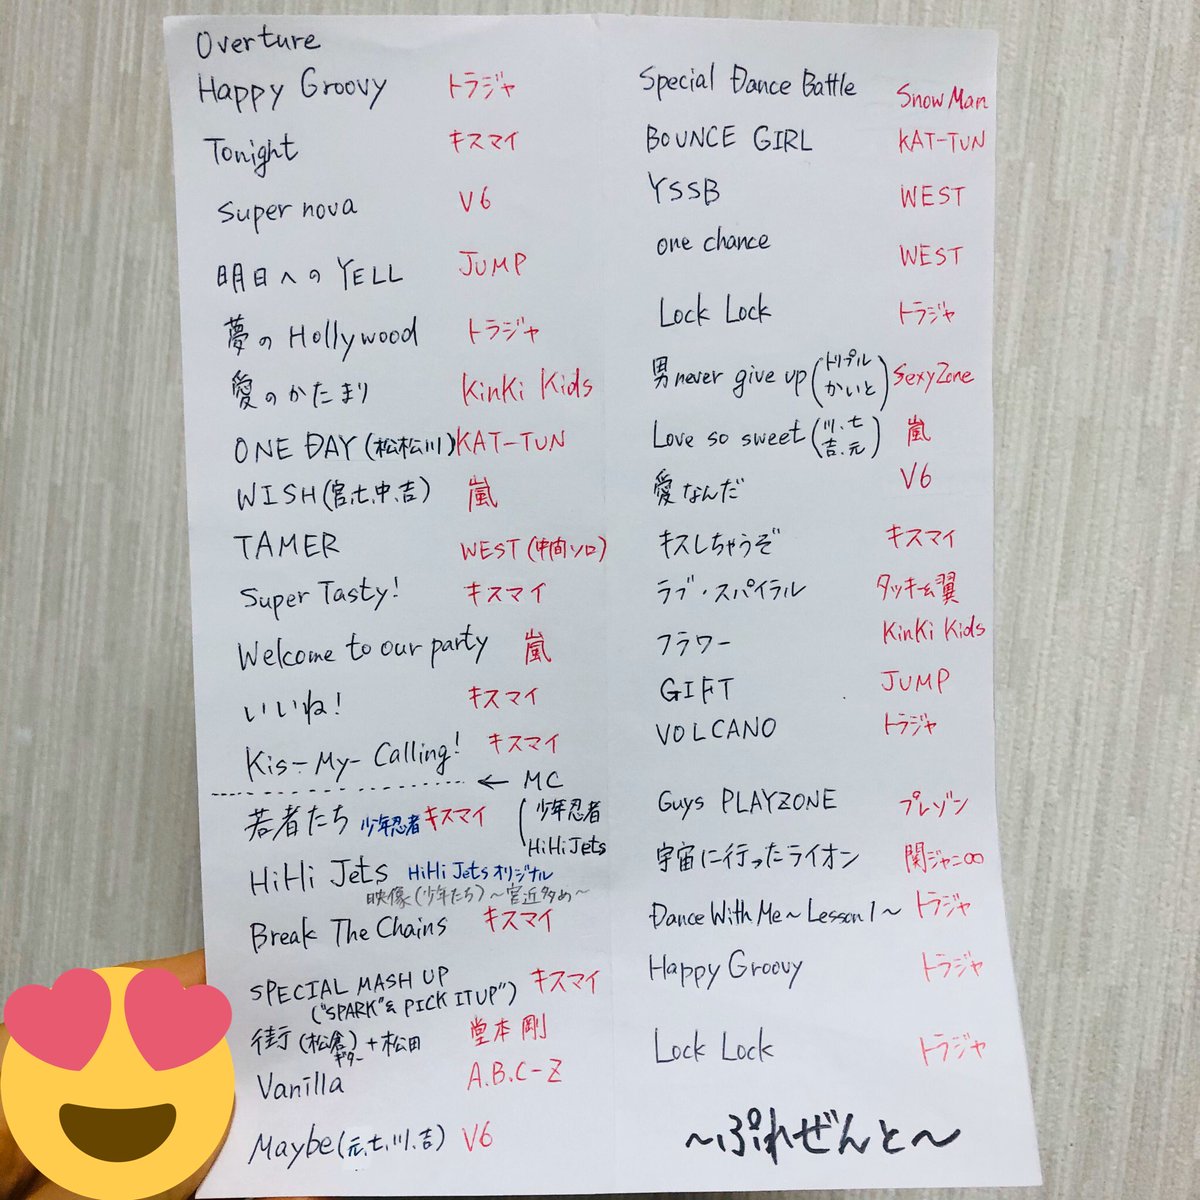 Overture
Happy Groovy トラジャ
Tonight キスマイ
Super nova V6
明日へのYELL JUMP
夢のHollywood トラジャ
愛のかたまり KinKi Kids
ONE DAY (松松川) KAT-TUN
WISH (宮.七.中.吉) 嵐
TAMER WEST (中間ソロ)
Super Tasty! キスマイ
Welcome to our party 嵐
いいね! キスマイ
Kis-My-Calling! キスマイ
← MC
少年忍者
HiHi Jets
若者たち 少年忍者 キスマイ
HiHi Jets HiHi Jets オリジナル
映像(少年たち)〜宮近多め〜
Break The Chains キスマイ
SPECIAL MASH UP
("SPARK"& PICK IT UP") キスマイ
街 (松倉)+松田 堂本剛
ギター
Vanilla A.B.C-Z
Maybe (元.七.川.吉) V6
Special Dance Battle Snow Man
BOUNCE GIRL KAT-TUN
YSSB WEST
one chance WEST
Lock Lock トラジャ
男never give up (トリプル かいと) SexyZone
Love so sweet (川.七 吉.元) 嵐
愛なんだ V6
キスしちゃうぞ キスマイ
ラブ・スパイラル タッキー&翼
フラワー KinKi Kids
GIFT JUMP
VOLCANO トラジャ
Guys PLAYZONE プレゾン
宇宙に行ったライオン 関ジャニ∞
Dance With Me〜Lesson1〜 トラジャ
Happy Groovy トラジャ
Lock Lock トラジャ
〜ぷれぜんと〜